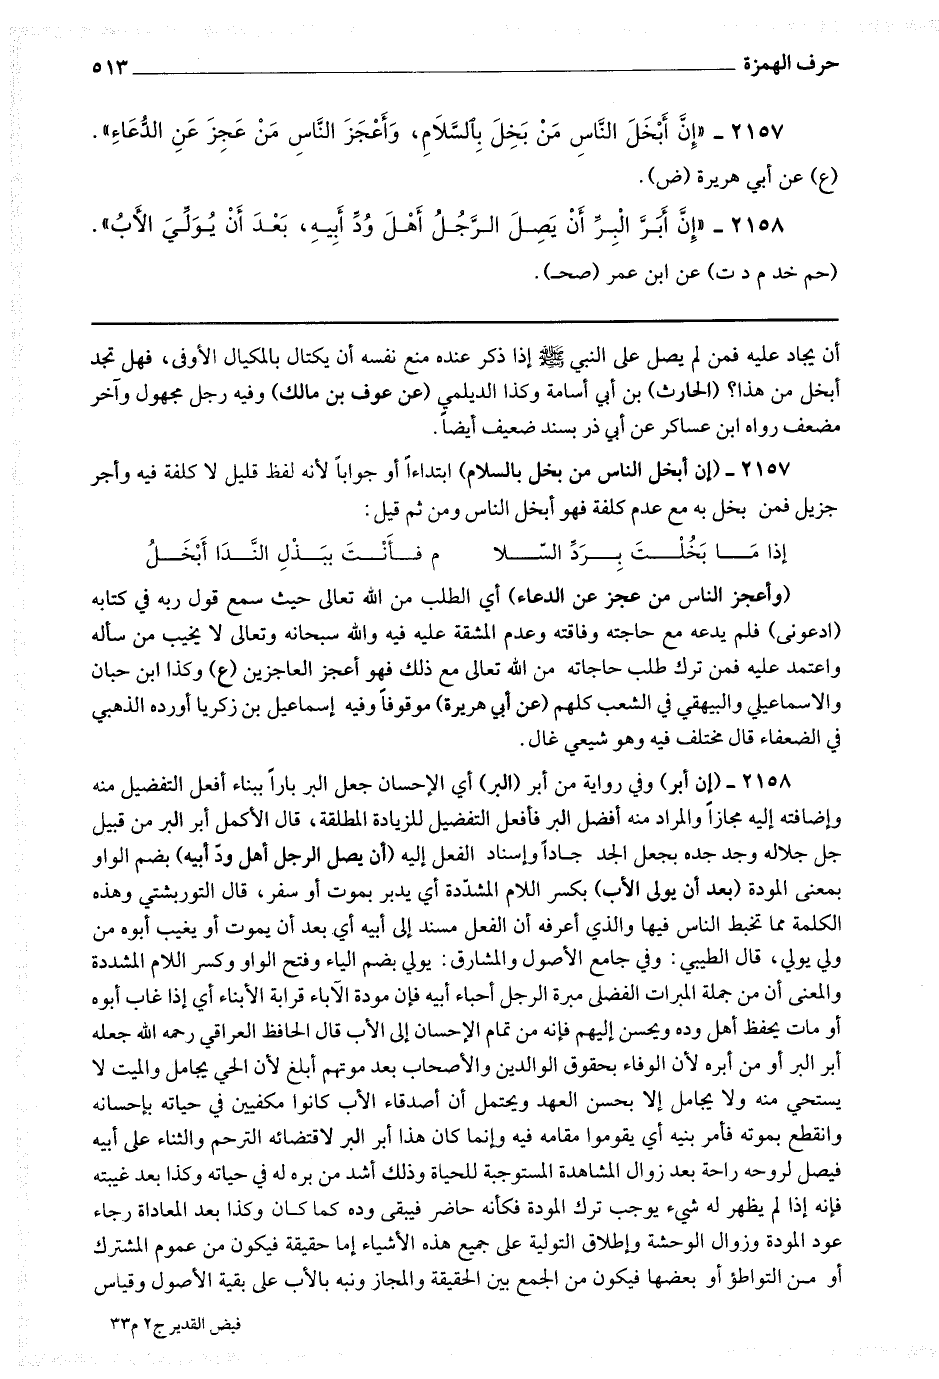 حرف الهمزة ٥١٣
٢١٥٧ ـ «إِنَّ أَبْخَلَ النَّاسِ مَنْ بَخِلَ بِالسَّلَامِ، وَأَعْجَزَ النَّاسِ مَنْ عَجِزَ عَنِ الدُّعَاءِ».
(ع) عن أبي هريرة (ض).
٢١٥٨ ـ «إِنَّ أَبَرَّ الْبِرِّ أَنْ يَصِلَ الرَّجُلُ أَهْلَ وُدِّ أَبِيهِ، بَعْدَ أَنْ يُوَلِّيَ الأَبُ».
(حم خد م د ت) عن ابن عمر (صحـ).
أن يجاد عليه فمن لم يصل على النبي ﷺ إذا ذكر عنده منع نفسه أن يكتال بالمكيال الأوفى، فهل تجد
أبخل من هذا؟ (الحارث) بن أبي أسامة وكذا الديلمي (عن عوف بن مالك) وفيه رجل مجهول وآخر
مضعف رواه ابن عساكر عن أبي ذر بسند ضعيف أيضاً.
٢١٥٧ ـ (إن أبخل الناس من بخل بالسلام) ابتداءاً أو جواباً لأنه لفظ قليل لا كلفة فيه وأجر
جزيل فمن بخل به مع عدم كلفة فهو أبخل الناس ومن ثم قيل:
إذا مَـا بَخُلْـتَ بِـرَدِّ السّـلا م فـأَنْـتَ بِبَذْلِ النَّـدَا أَبْخَـلُ
(وأعجز الناس من عجز عن الدعاء) أي الطلب من الله تعالى حيث سمع قول ربه في كتابه
(ادعونى) فلم يدعه مع حاجته وفاقته وعدم المشقة عليه فيه والله سبحانه وتعالى لا يخيب من سأله
واعتمد عليه فمن ترك طلب حاجاته من الله تعالى مع ذلك فهو أعجز العاجزين (ع) وكذا ابن حبان
والاسماعيلي والبيهقي في الشعب كلهم (عن أبي هريرة) موقوفاً وفيه إسماعيل بن زكريا أورده الذهبي
في الضعفاء قال مختلف فيه وهو شيعي غال.
٢١٥٨ ـ (إن أبر) وفي رواية من أبر (البر) أي الإحسان جعل البر باراً ببناء أفعل التفضيل منه
وإضافته إليه مجازاً والمراد منه أفضل البر فأفعل التفضيل للزيادة المطلقة، قال الأكمل أبر البر من قبيل
جل جلاله وجد جده بجعل الجد جـاداً وإسناد الفعل إليه (أن يصل الرجل أهل ودّ أبيه) بضم الواو
بمعنى المودة (بعد أن يولى الأب) بكسر اللام المشدّدة أي يدبر بموت أو سفر، قال التوربشتي وهذه
الكلمة مما تخبط الناس فيها والذي أعرفه أن الفعل مسند إلى أبيه أي بعد أن يموت أو يغيب أبوه من
ولي يولي، قال الطيبي: وفي جامع الأصول والمشارق: يولي بضم الياء وفتح الواو وكسر اللام المشددة
والمعنى أن من جملة المبرات الفضلى مبرة الرجل أحباء أبيه فإن مودة الآباء قرابة الأبناء أي إذا غاب أبوه
أو مات يحفظ أهل وده ويحسن إليهم فإنه من تمام الإحسان إلى الأب قال الحافظ العراقي رحمه الله جعله
أبر البر أو من أبره لأن الوفاء بحقوق الوالدين والأصحاب بعد موتهم أبلغ لأن الحي يجامل والميت لا
يستحي منه ولا يجامل إلا بحسن العهد ويحتمل أن أصدقاء الأب كانوا مكفيين في حياته بإحسانه
وانقطع بموته فأمر بنيه أي يقوموا مقامه فيه وإنما كان هذا أبر البر لاقتضائه الترحم والثناء على أبيه
فيصل لروحه راحة بعد زوال المشاهدة المستوجبة للحياة وذلك أشد من بره له في حياته وكذا بعد غيبته
فإنه إذا لم يظهر له شيء يوجب ترك المودة فكأنه حاضر فيبقى وده كما كـان وكذا بعد المعاداة رجاء
عود المودة وزوال الوحشة وإطلاق التولية على جميع هذه الأشياء إما حقيقة فيكون من عموم المشترك
أو مـن التواطؤ أو بعضها فيكون من الجمع بين الحقيقة والمجاز ونبه بالأب على بقية الأصول وقياس
فيض القدير ج٢ م٣٣